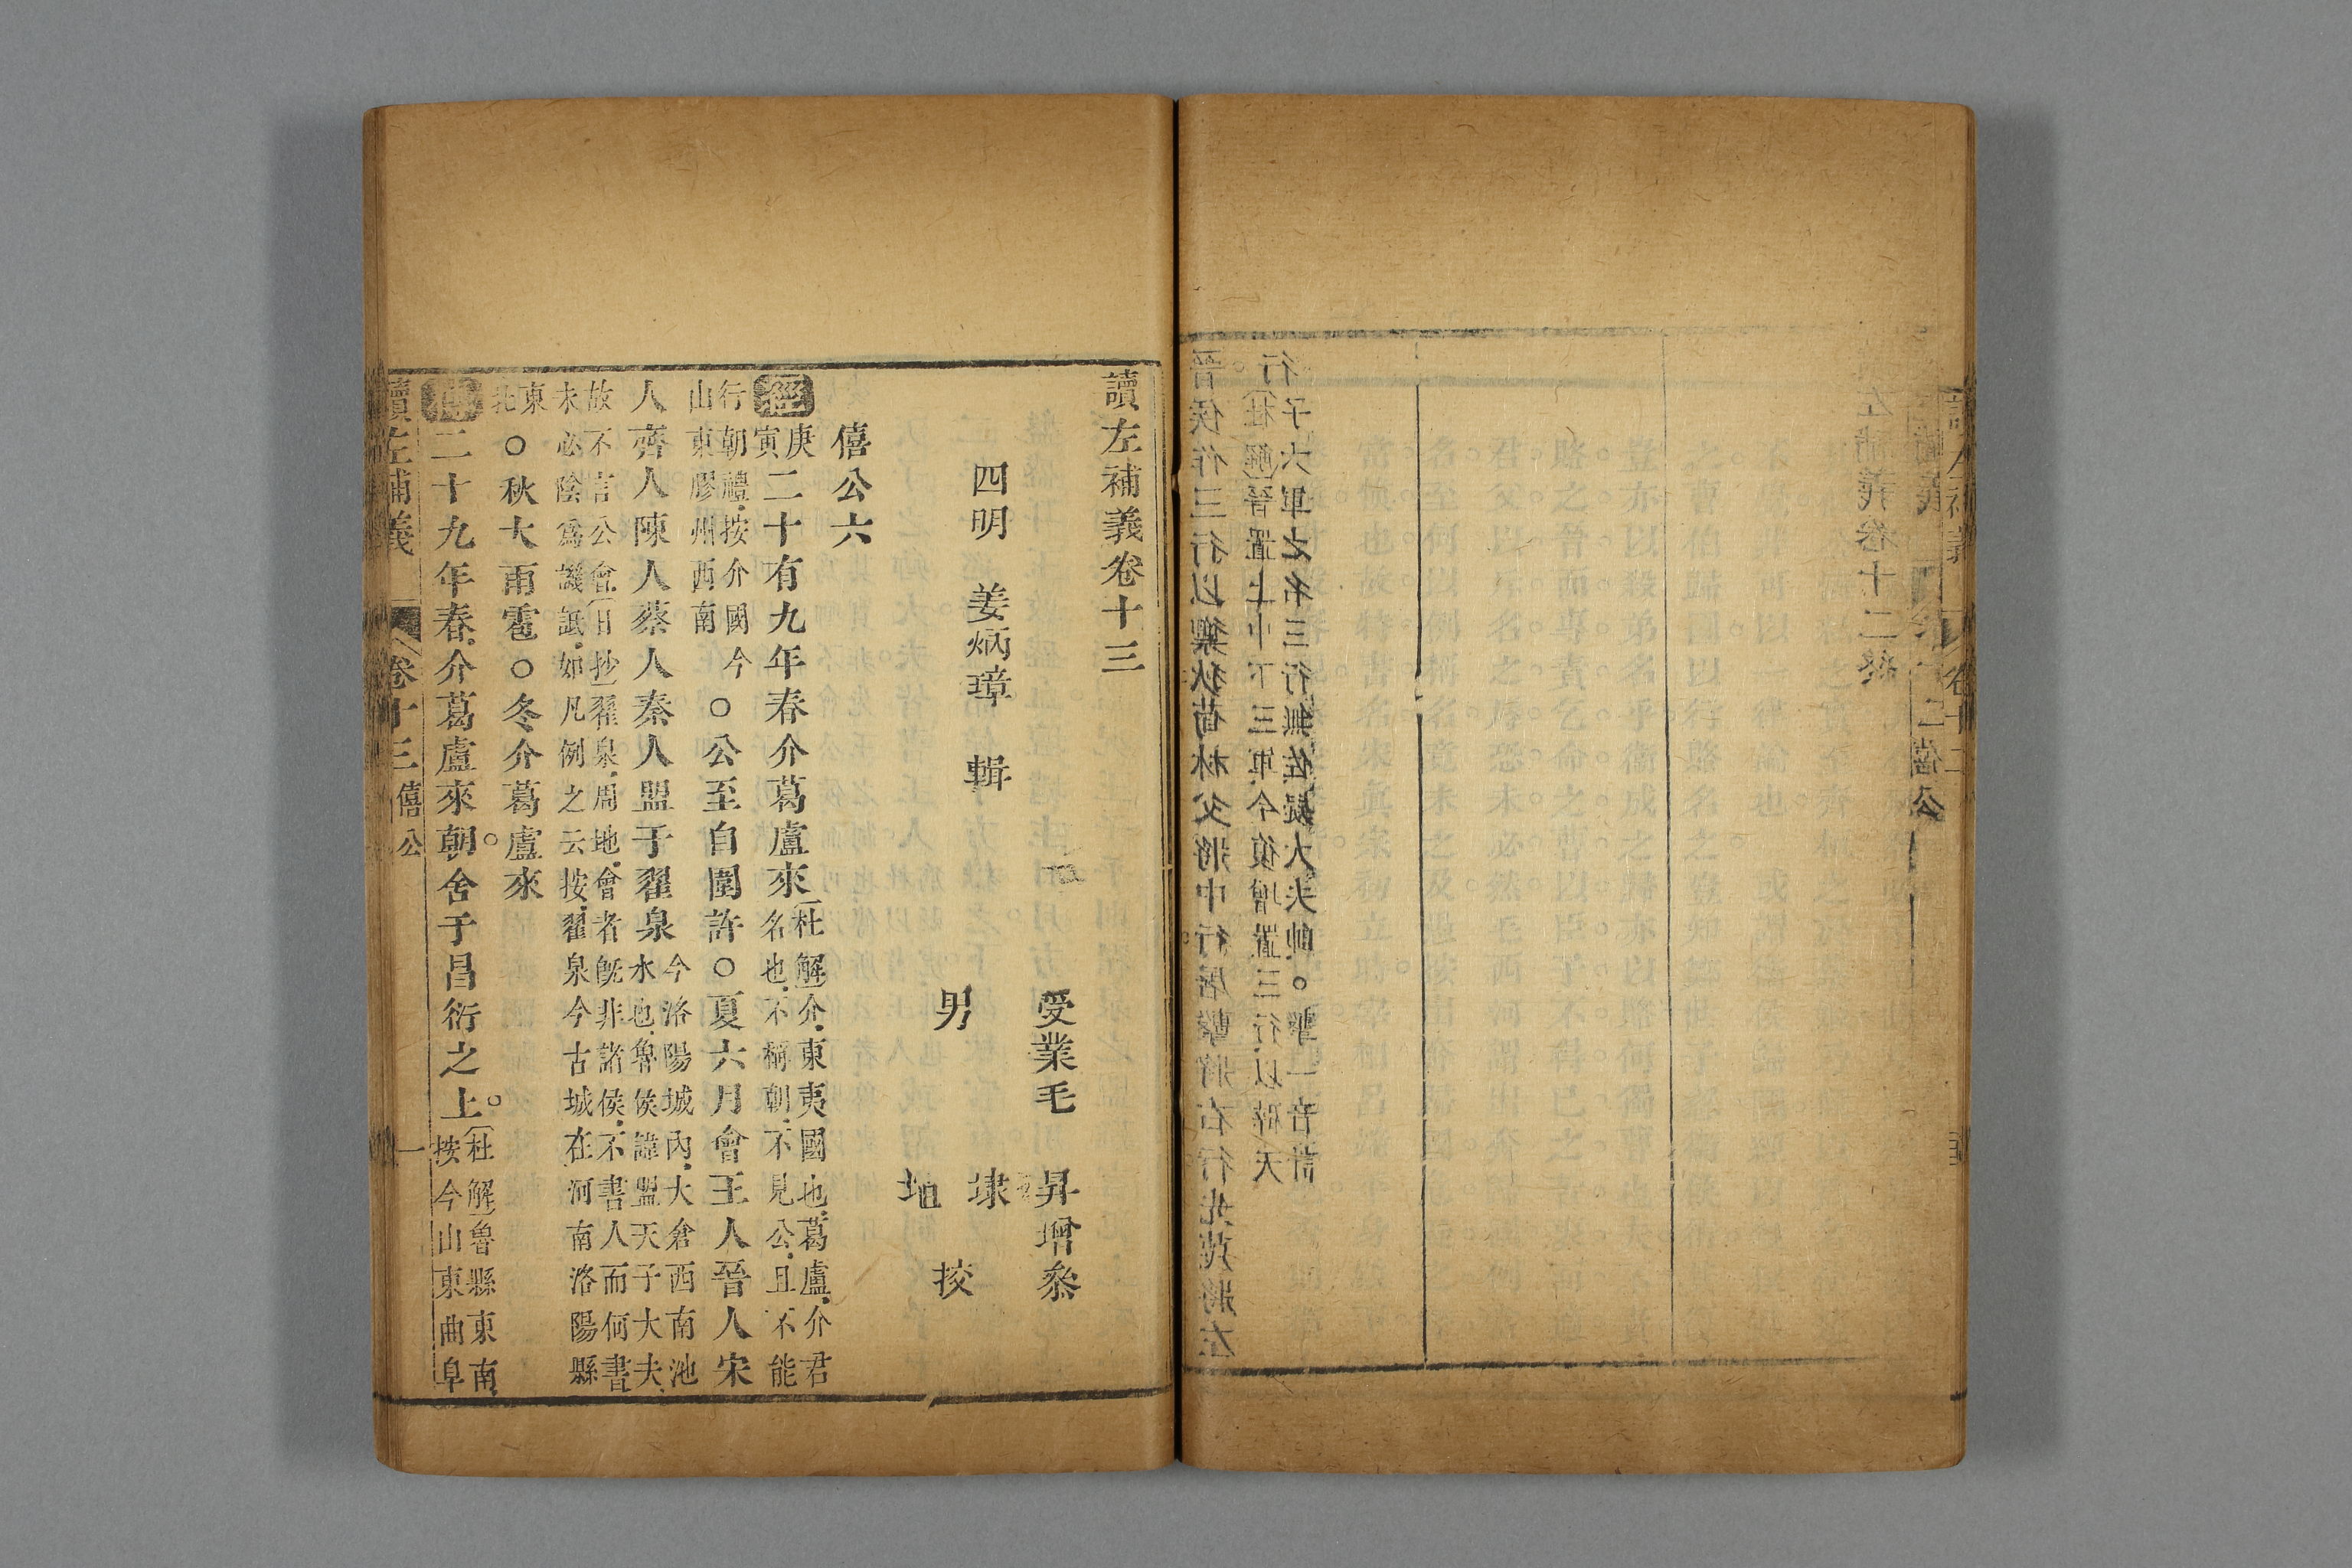 左補義卷十二終
行子六軍之名三行無佐疑大夫帥。
行杜解晉置上中下三軍今復增置三行以辟天
晉侯作三行以禦狄荀林父將中行屠擊將右行先蔑將左
讀左補義卷十三
受業毛 昇增叅
四明 姜炳璋 輯
男 埭 挍
僖公六
經庚寅二十有九年春介葛盧來杜解介東夷國也葛盧介君
名也不稱朝不見公且不能
行朝禮按介國今
山東膠州西南○公至自圍許○夏六月會王人晉人宋
人齊人陳人蔡人秦人盟于翟泉今洛陽城內大倉西南池
水也魯侯諱盟天子大夫
故不言公會日抄翟泉周地會者旣非諸侯不書人而何書
未必陰爲譏詆如凡例之云按翟泉今古城在河南洛陽縣
東
北○秋大雨雹○冬介葛盧來
傳二十九年春介葛盧來朝舍于昌衍之上杜解魯縣東南
按今山東曲阜
讀左補義 卷十三 僖公 一